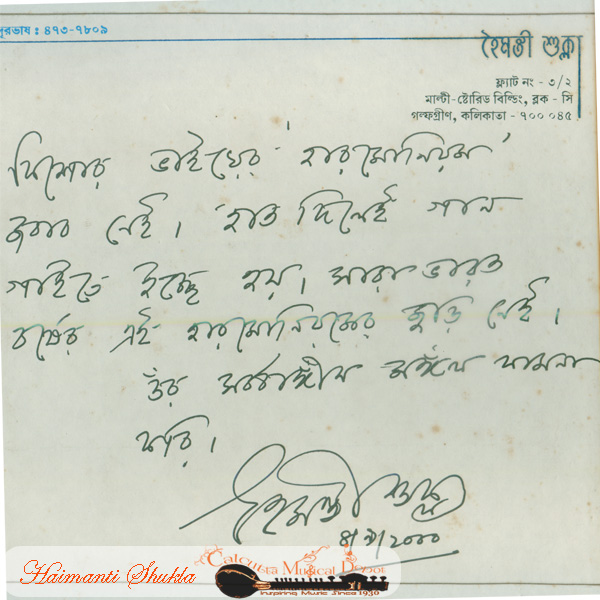 দূরভাষ : ৪৭৩-৭৮০৯
হৈমন্তী শুক্লা
ফ্ল্যাট নং - ৩/২
মাল্টী-ষ্টোরিড বিল্ডিং, ব্লক - সি
গল্ফগ্রীণ, কলিকাতা - ৭০০ ০৪৫
ভাইয়ের 'হারমোনিয়ম'
জবাব নেই। হাত দিলেই গান
গাইতে ইচ্ছে হয়। সারা ভারত
বর্ষের এই হারমোনিয়মের জুড়ি নেই।
ওঁর সর্বাঙ্গীন মঙ্গল কামনা
করি।
হৈমন্তী শুক্লা
Haimanti Shukla
Calcutta Musical Depot
Inspiring Music Since 1930